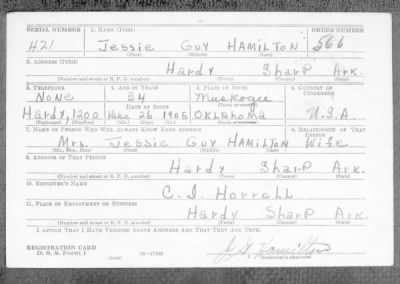 SERIAL NUMBER 1. NAME (Print) ORDER NUMBER
421 Jessie Guy HAMILTON 566
(First) (Middle) (Last)
2. ADDRESS (Print)
Hardy Sharp Ark.
(Number and street or R. F. D. number) (Town) (County) (State)
3. TELEPHONE 4. AGE IN YEARS 5. PLACE OF BIRTH 6. COUNTRY OF CITIZENSHIP
NONE 34 Muskogee
DATE OF BIRTH
Hardy, 1200 Dec 26 1905 Oklahoma U.S.A.
(Exchange) (Number) (Mo.) (Day) (Yr.) (State or country)
7. NAME OF PERSON WHO WILL ALWAYS KNOW YOUR ADDRESS 8. RELATIONSHIP OF THAT PERSON
Mrs. Jessie Guy HAMILTON Wife
(Mr., Mrs., Miss) (First) (Middle) (Last)
9. ADDRESS OF THAT PERSON
Hardy Sharp Ark.
(Number and street or R. F. D. number) (Town) (County) (State)
10. EMPLOYER'S NAME
C. I. Horrell
11. PLACE OF EMPLOYMENT OR BUSINESS
Hardy Sharp Ark.
(Number and street or R. F. D. number) (Town) (County) (State)
I AFFIRM THAT I HAVE VERIFIED ABOVE ANSWERS AND THAT THEY ARE TRUE.
REGISTRATION CARD
D. S. S. FORM 1
J. G. Hamilton
(Registrant's signature)